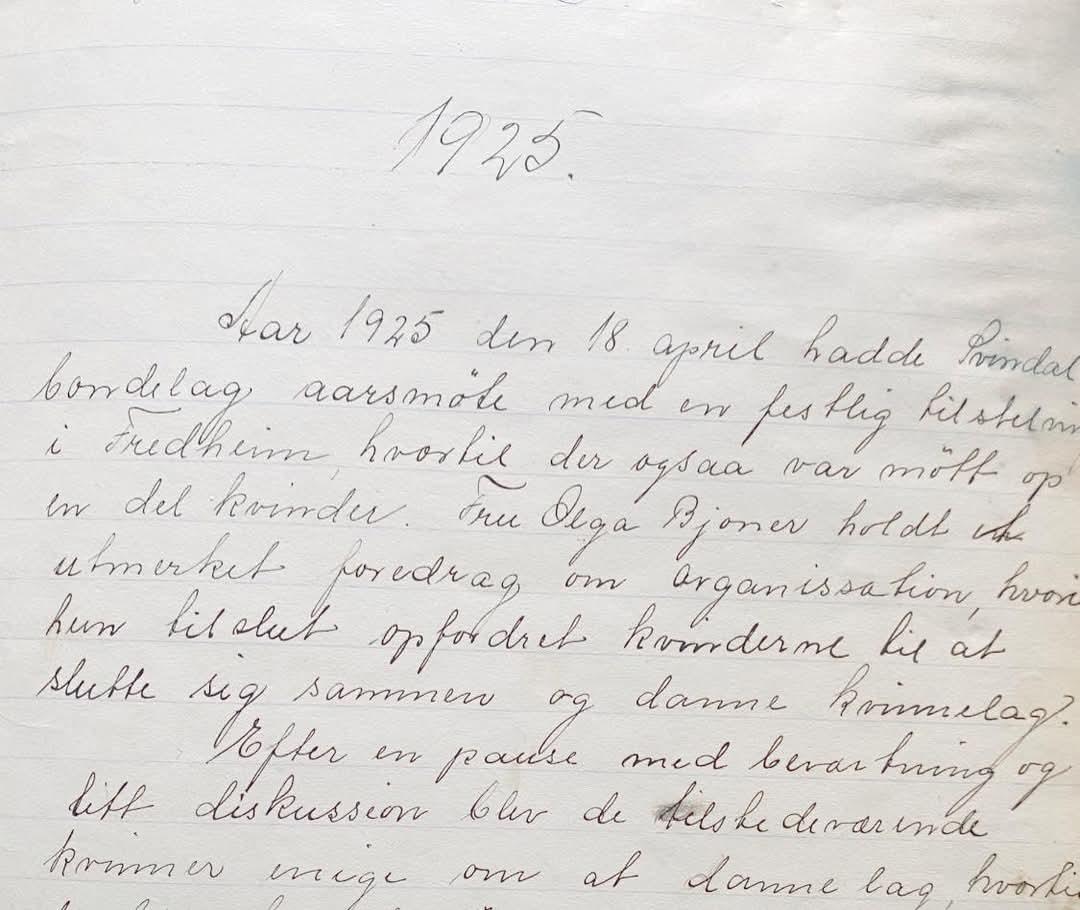 1925.
Aar 1925 den 18. april hadde Svindal
bondelag aarsmöte med en festlig tilstelnin
i Fredheim, hvortil der ogsaa var mött op
en del kvinder. Fru Olga Bjoner holdt et
utmerket foredrag om organissation, hvori
hun tilslut opfordret kvinderne til at
slutte sig sammen og danne kvinnelag.
Efter en pause med bevertning og
litt diskussion blev de tilstedeværende
kvinner enige om at danne lag, hvortil